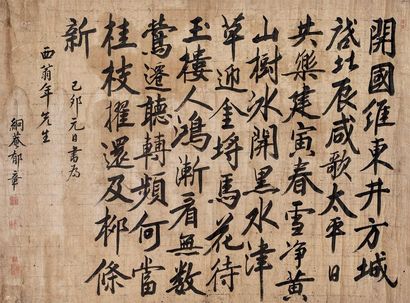 開國維東井方城
啟北辰咸歌太平日
共樂建寅春雪净黃
山樹冰開黑水津
草迎金埒馬花待
玉樓人鴻漸看無數
鶯遷聽轉頻何當
桂枝擢還及柳條
新
己卯元日書為
西翁年先生
絅菴郁章